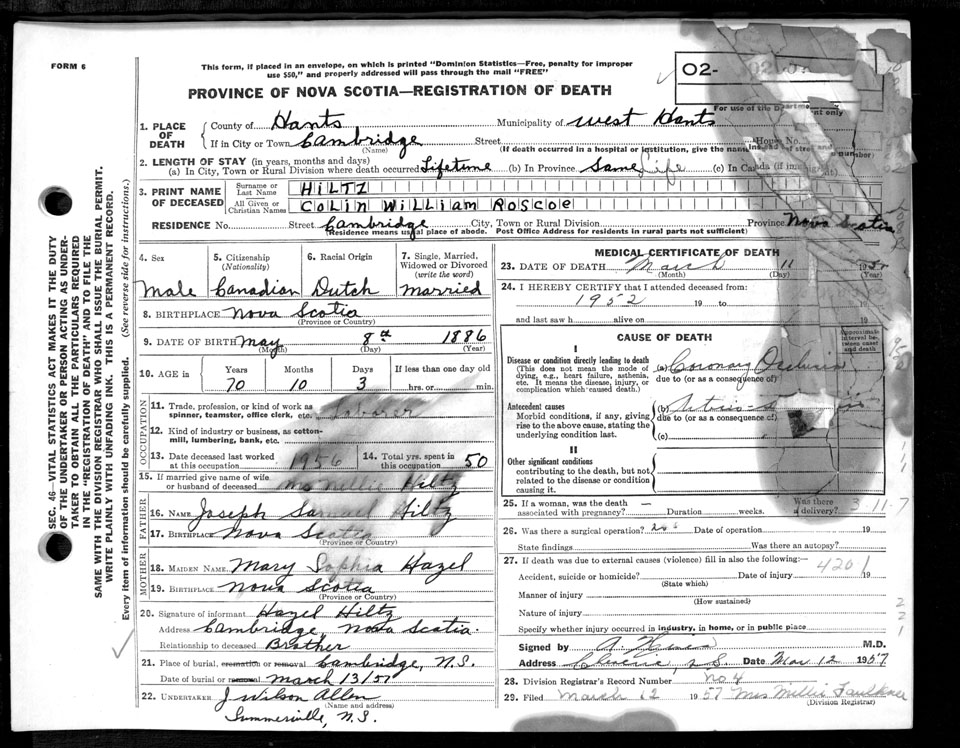 FORM 6
This form, if placed in an envelope, on which is printed "Dominion Statistics—Free, penalty for improper
use $50," and properly addressed will pass through the mail "FREE"
02-
PROVINCE OF NOVA SCOTIA—REGISTRATION OF DEATH
For use of the Department only
1. PLACE OF DEATH
County of Hants Municipality of West Hants
If in City or Town Cambridge Street House No.
(Name) (If death occurred in a hospital or institution, give the name instead of street and number)
2. LENGTH OF STAY (in years, months and days)
(a) In City, Town or Rural Division where death occurred Lifetime (b) In Province Same Life (c) In Canada (if immigrant)
3. PRINT NAME OF DECEASED
Surname or Last Name HILTZ
All Given or Christian Names COLIN WILLIAM ROSCOE
RESIDENCE No. Street Cambridge City, Town or Rural Division Province Nova Scotia
(Residence means usual place of abode. Post Office Address for residents in rural parts not sufficient)
4. Sex Male
5. Citizenship (Nationality) Canadian
6. Racial Origin Dutch
7. Single, Married, Widowed or Divorced (write the word) Married
8. BIRTHPLACE Nova Scotia
(Province or Country)
9. DATE OF BIRTH May 8th 1886
(Month) (Day) (Year)
10. AGE in Years Months Days If less than one day old
70 10 3 hrs. or min.
OCCUPATION
11. Trade, profession, or kind of work as
spinner, teamster, office clerk, etc. Laborer
12. Kind of industry or business, as cotton-
mill, lumbering, bank, etc.
13. Date deceased last worked
at this occupation 1956
14. Total yrs. spent in
this occupation 50
15. If married give name of wife
or husband of deceased Millie Hiltz
FATHER
16. NAME Joseph Samuel Hiltz
17. BIRTHPLACE Nova Scotia
(Province or Country)
MOTHER
18. MAIDEN NAME Mary Sophia Hazel
19. BIRTHPLACE Nova Scotia
(Province or Country)
20. Signature of informant Hazel Hiltz
Address Cambridge, Nova Scotia.
Relationship to deceased Brother
21. Place of burial, cremation or removal Cambridge, N.S.
Date of burial or removal March 13/57
22. UNDERTAKER J Wilson Allen
(Name and address)
Summerville, N.S.
MEDICAL CERTIFICATE OF DEATH
23. DATE OF DEATH March 11 19
(Month) (Day) (Year)
24. I HEREBY CERTIFY that I attended deceased from:
1952 19 to 19
and last saw h alive on 19
CAUSE OF DEATH
Approximate interval between cause and death
I
Disease or condition directly leading to death
(This does not mean the mode of
dying, e.g., heart failure, asthenia,
etc. It means the disease, injury, or
complication which caused death.)
(a) Coronary Occlusion
due to (or as a consequence of)
Antecedent causes
Morbid conditions, if any, giving
rise to the above cause, stating the
underlying condition last.
(b)
due to (or as a consequence of)
(c)
II
Other significant conditions
contributing to the death, but not
related to the disease or condition
causing it.
25. If a woman, was the death
associated with pregnancy? Duration weeks. Was there a delivery?
3-11-7
26. Was there a surgical operation? no Date of operation 19
State findings Was there an autopsy?
27. If death was due to external causes (violence) fill in also the following:—
4201
Accident, suicide or homicide? Date of injury 19
(State which)
Manner of injury
(How sustained)
Nature of injury
Specify whether injury occurred in industry, in home, or in public place
Signed by M.D.
Address Date Mar 12 1957
28. Division Registrar's Record Number No 4
29. Filed March 12 1957 Mrs Millie Faulkner
(Division Registrar)
SEC. 46—VITAL STATISTICS ACT MAKES IT THE DUTY
OF THE UNDERTAKER OR PERSON ACTING AS UNDER-
TAKER TO OBTAIN ALL THE PARTICULARS REQUIRED
IN THE "REGISTRATION OF DEATH" AND TO FILE THE
SAME WITH THE DIVISION REGISTRAR WHO SHALL ISSUE THE BURIAL PERMIT.
WRITE PLAINLY WITH UNFADING INK. THIS IS A PERMANENT RECORD.
Every item of information should be carefully supplied. (See reverse side for instructions.)